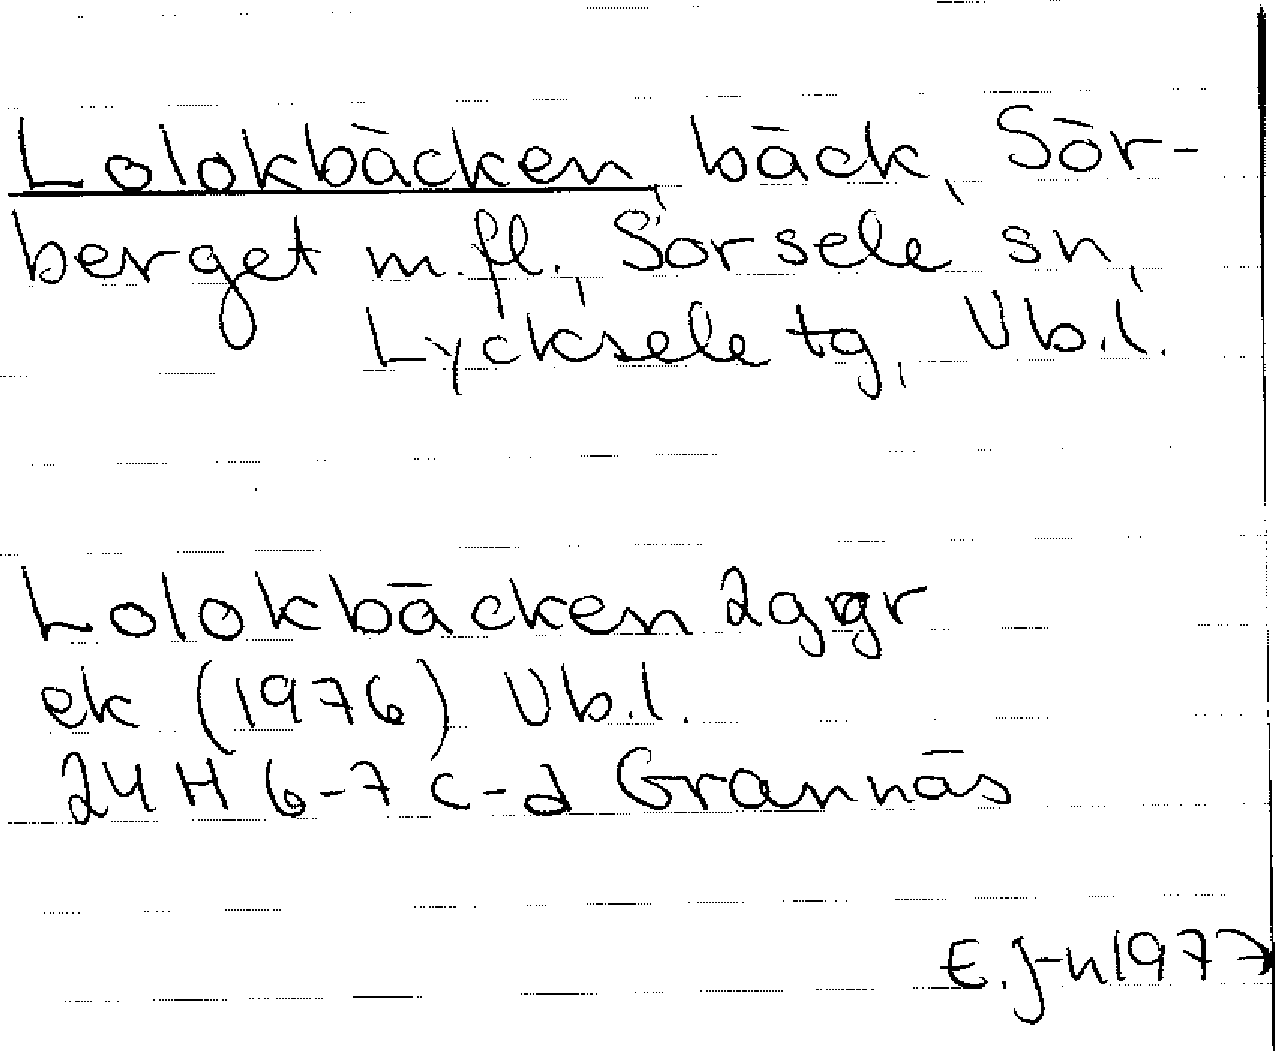 Lolokbäcken, bäck, Sör-
berget m.fl., Sorsele sn,
Lycksele tg, Vb.l.
Lolokbäcken 2ggr
ek (1976) Vb.l.
24 H 6-7 c-d Grannäs
E. J-n 1977